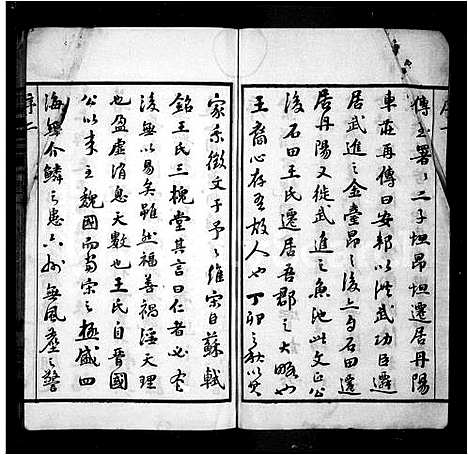 傳至署〻二子坦昂坦遷居丹陽
車莊再傳曰安邦以洪武功臣遷
居武進之金臺昂之後上與石田遷
居丹陽又徙武進之魚池此文正公
後石田王氏遷居吾郡之大略也
王裔心存吾故人也丁卯之秋以其
家乘徵文于予〻維宗自蘇軾
銘王氏三槐堂其言曰仁者必有
後無以易矣雖然福善禍淫天理
也盈虛消息天數也王氏自晉國
公以來至魏國而當宗之極盛四
海無介鱗之患六州無風塵之警
序二